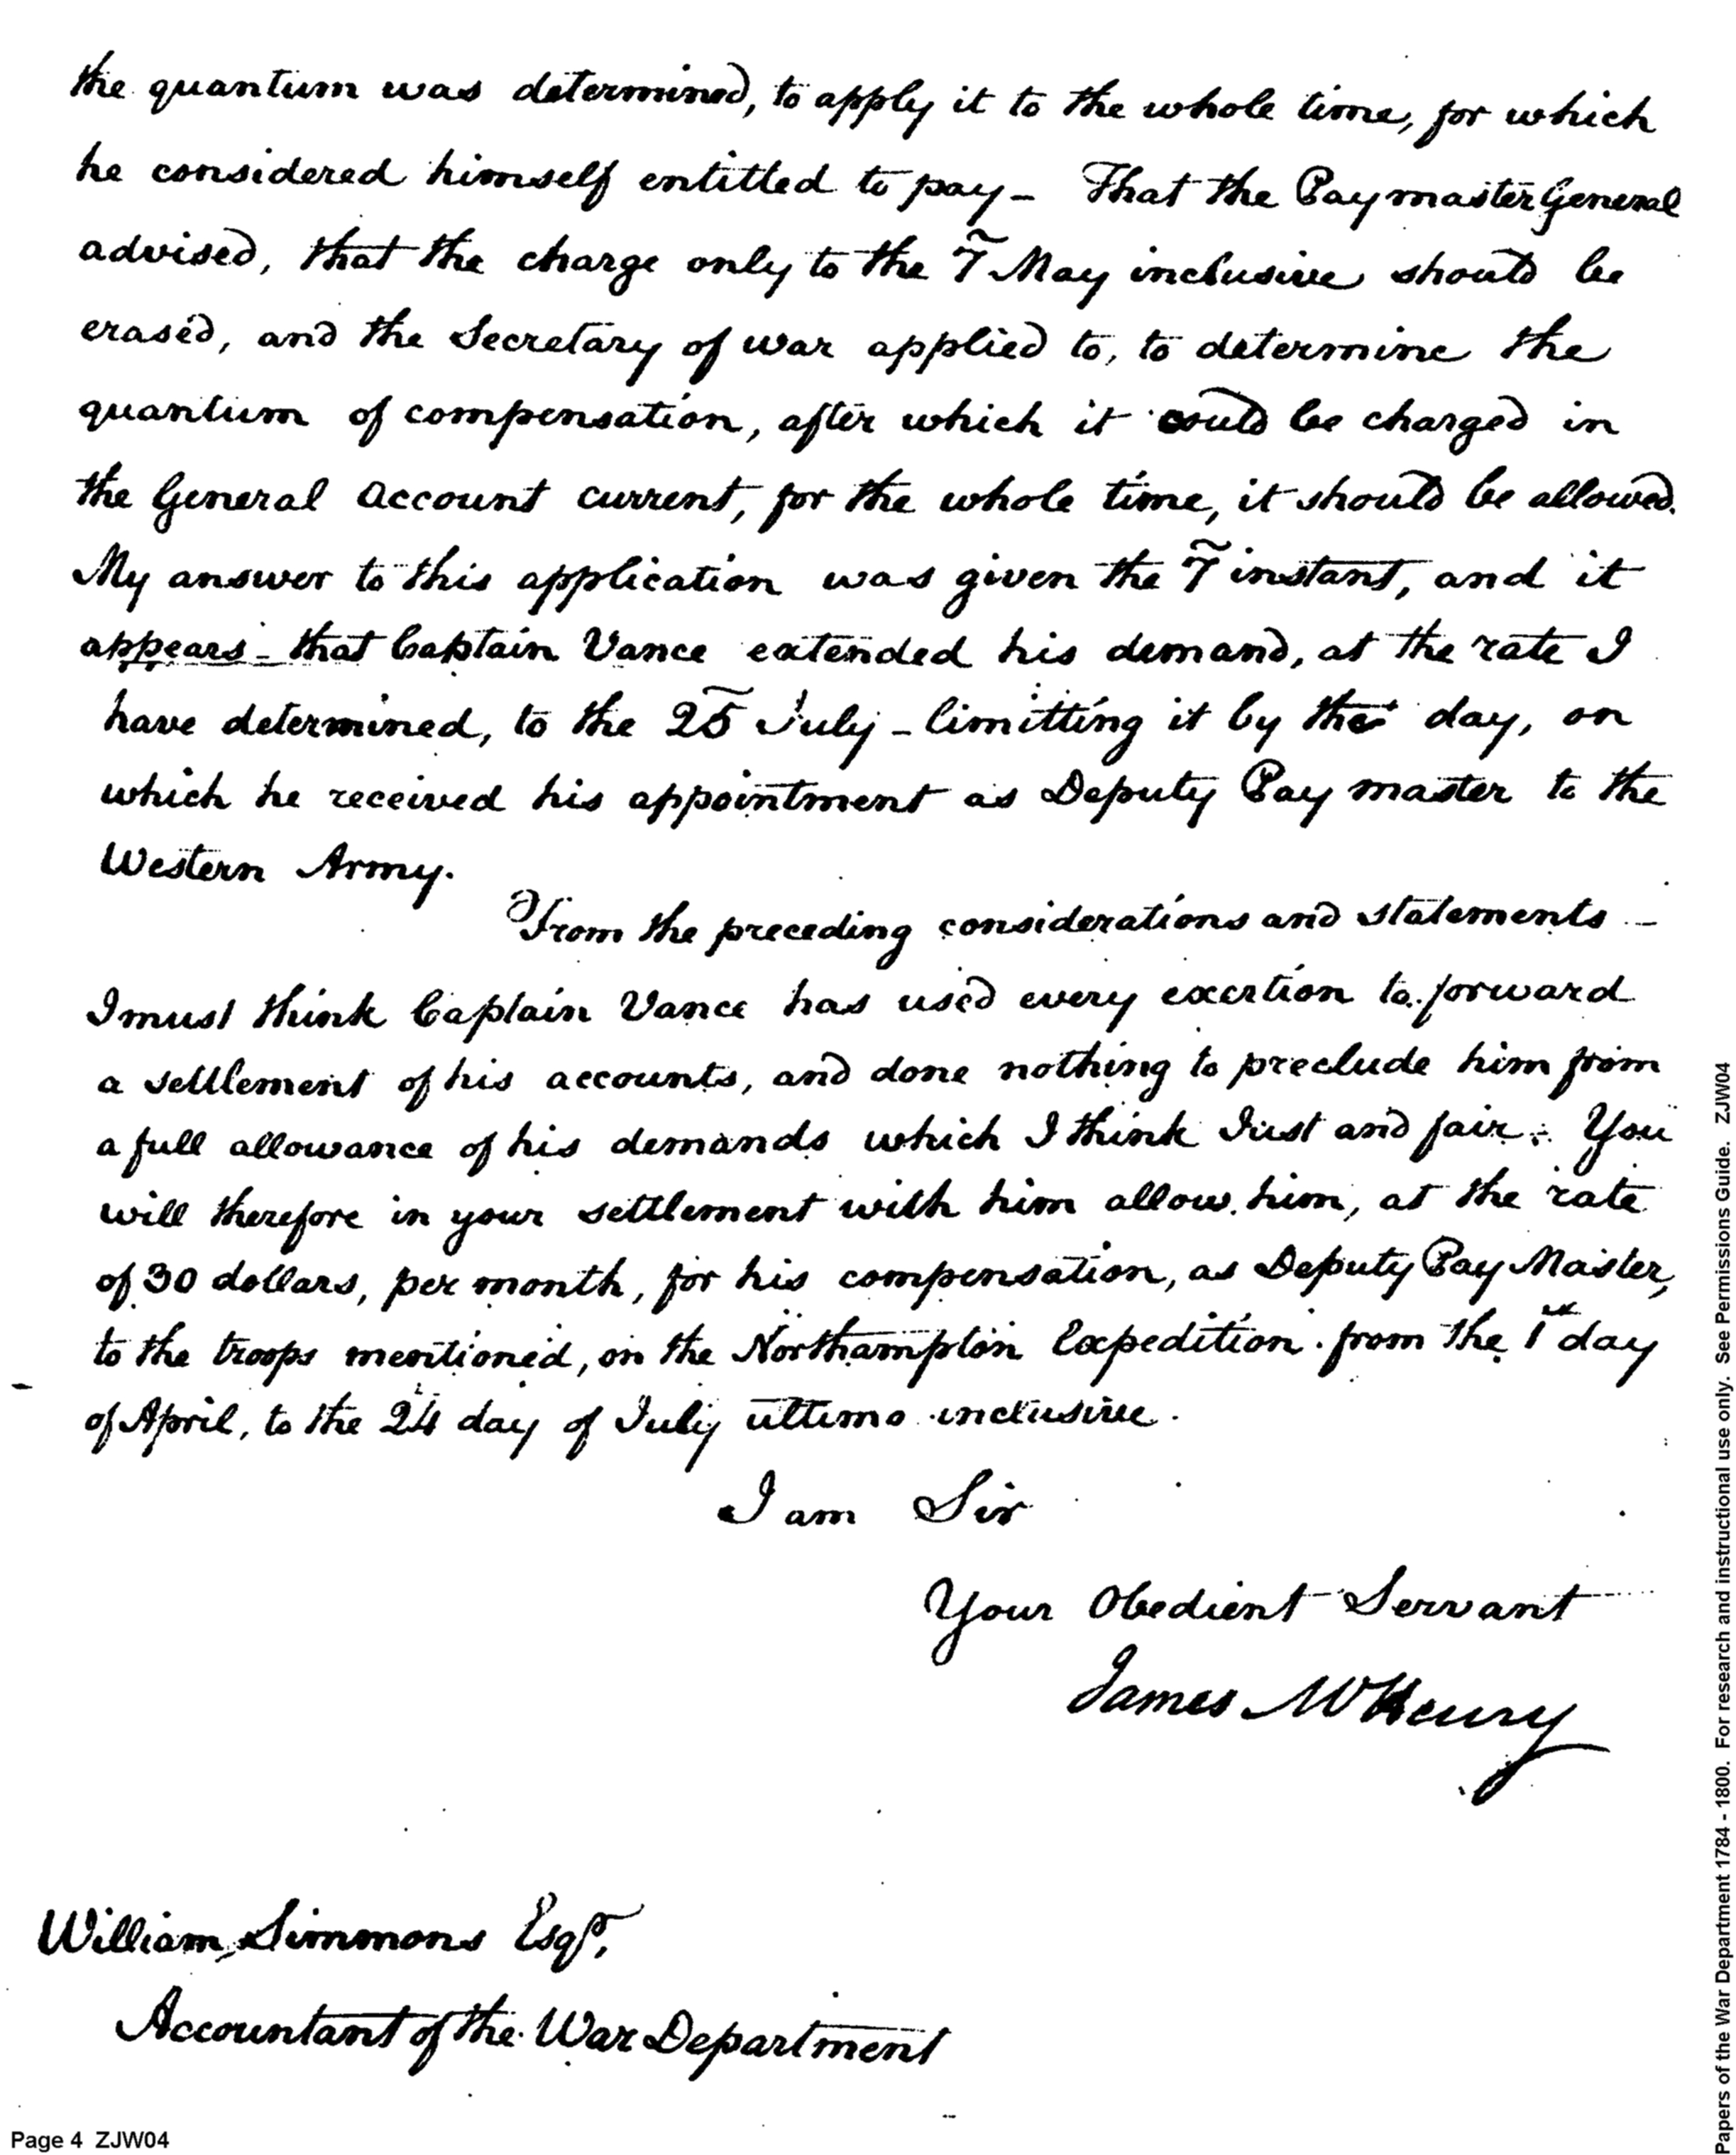 the quantum was determined, to apply it to the whole time, for which
he considered himself entitled to pay - That the Paymaster General
advised, that the charge only to the 7 May inclusive should be
erased, and the Secretary of war applied to, to determine the
quantum of compensation, after which it could be charged in
the General Account current, for the whole time, it should be allowed.
My answer to this application was given the 7 instant, and it
appears - that Captain Vance extended his demand, at the rate I
have determined, to the 25 July - limitting it by the day, on
which he received his appointment as Deputy Pay master to the
Western Army.
From the preceding considerations and statements -
I must think Captain Vance has used every exertion to forward
a settlement of his accounts, and done nothing to preclude him from
a full allowance of his demands which I think Just and fair. You
will therefore in your settlement with him allow him, at the rate
of 30 dollars, per month, for his compensation, as Deputy Pay Master,
to the troops mentioned, on the Northampton Expedition from the 1st day
of April, to the 24 day of July ultimo inclusive.
I am Sir
Your Obedient Servant
James McHenry
William Simmons Esqr.
Accountant of the War Department
Page 4 ZJW04
Papers of the War Department 1784 - 1800. For research and instructional use only. See Permissions Guide. ZJW04